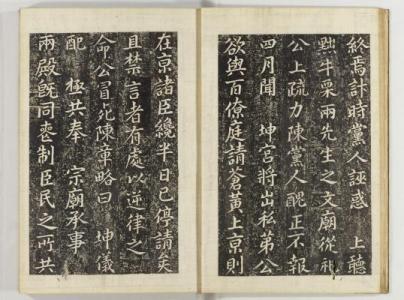 終焉計時黨人誣惑 上聽
黜牛栗兩先生之文廟從祀
公上疏力陳黨人醜正不報
四月聞 坤宮將出私第公
欲與百僚庭請蒼黃上京則
在京諸臣纔半日已停請矣
且禁言者有處以逆律之
命公冒死陳章略曰 坤儀
配 極共奉 宗廟承事
兩殿旣同喪制臣民之所共